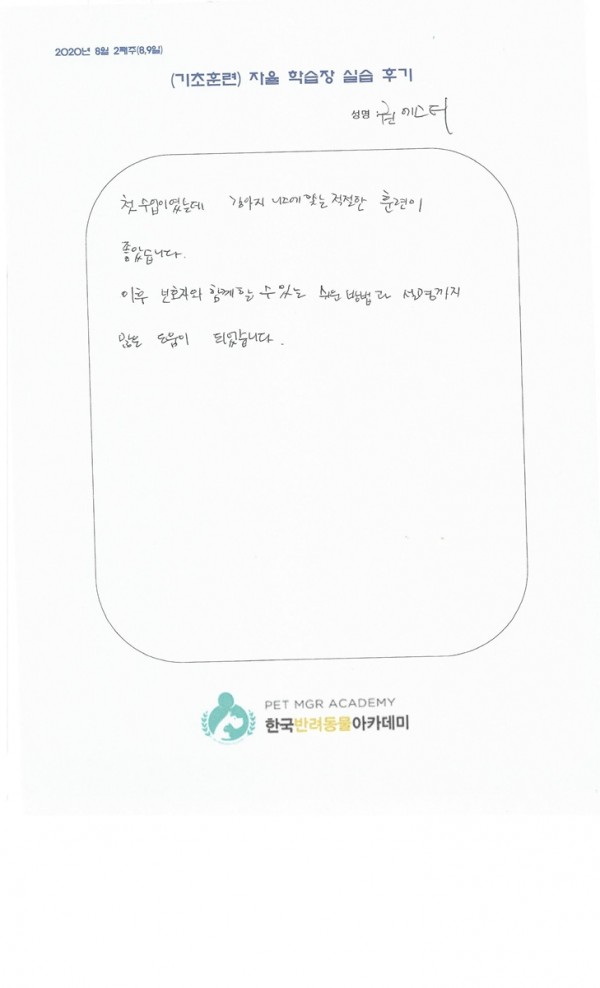 2020년 8월 2째주(8,9일)
(기초훈련) 자율 학습장 실습 후기
성명 권 에스더
첫 수업이였는데 강아지 니즈에 맞는 적절한 훈련이
좋았습니다.
이후 보호자와 함께할 수 있는 쉬운 방법과 설명까지
많은 도움이 되었습니다.
PET MGR ACADEMY
한국반려동물아카데미